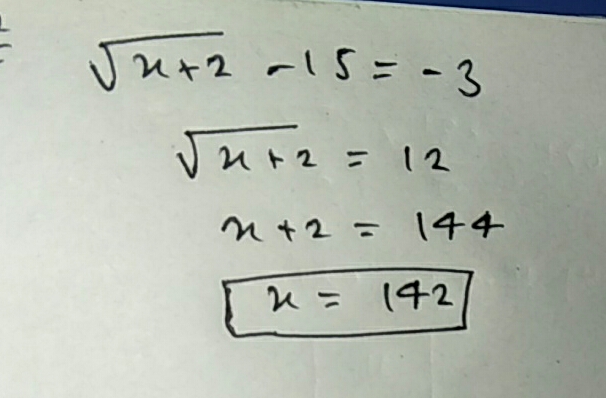 √x+2 -15 = -3
√x+2 = 12
x+2 = 144
x = 142